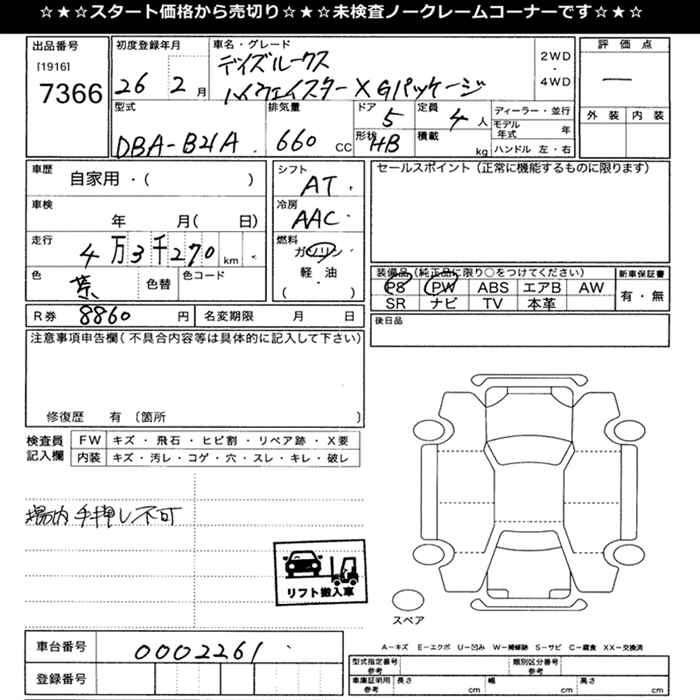 ☆★☆スタート価格から売切り☆★☆未検査ノークレームコーナーです☆★☆
出品番号
[1916]
7366
初度登録年月
26 2月
車名・グレード
デイズルークス
ハイウェイスターX Gパッケージ
2WD
・
4WD
評価点
—
外装 内装
型式
DBA-B21A
排気量
660 CC
ドア
5
形状
HB
定員
4人
積載
kg
ディーラー・並行
モデル年式 年
ハンドル 左・右
車歴
自家用・( )
車検
年 月( 日)
走行
4万3千270km
色
紫
色替
色コード
シフト
AT
冷房
AAC
燃料
ガソリン
軽・油
( ・ )
セールスポイント(正常に機能するものに限ります)
装備品(純正品に限り○をつけてください)
PS PW ABS エアB AW
SR ナビ TV 本革
新車保証書
有・無
R券 8860円
名変期限 月 日
後日品
注意事項申告欄(不具合内容等は具体的に記入して下さい)
修復歴 有 〔箇所 〕
検査員記入欄
FW キズ・飛石・ヒビ割・リペア跡・X要
内装 キズ・汚レ・コゲ・穴・スレ・キレ・破レ
場内 手押し不可
リフト搬入車
スペア
A－キズ E－エクボ U－凹み W－補修跡 S－サビ C－腐食 XX－交換済
車台番号
0002261
登録番号
型式指定番号
参考
類別区分番号
参考
車庫証明用
参考
長さ cm
幅 cm
高さ cm